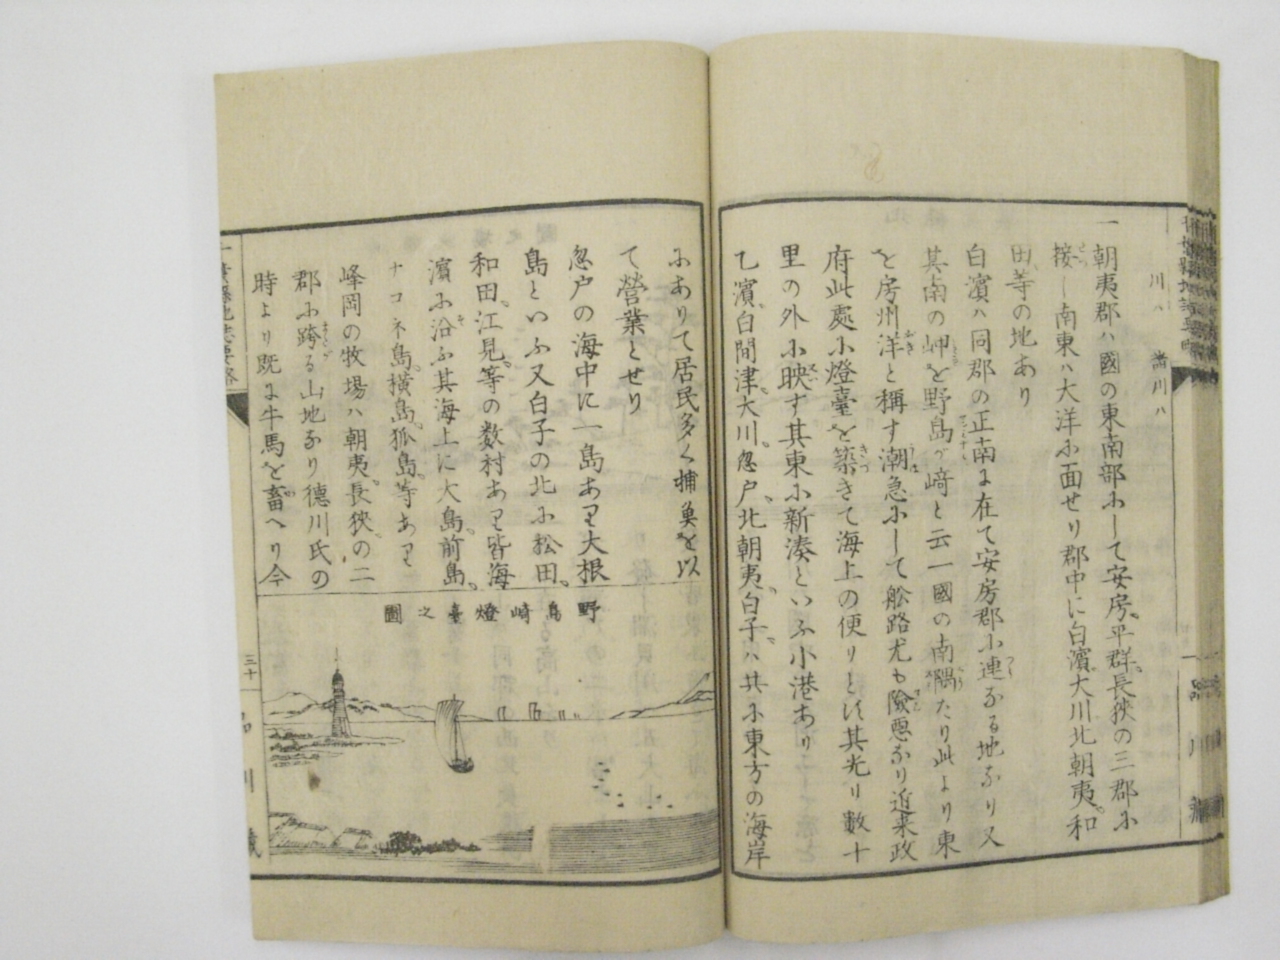 一朝夷郡ハ國の東南部ふして安房。平群。長狭の三郡ふ
接し南東ハ大洋ふ面せり郡中に白濱。大川北朝夷。和
田等の地あり
白濱ハ同郡の正南に在て安房郡小連なる地なり又
其南の岬を野島ヶ﨑と云一國の南隅たり此より東
を房州洋と稱す潮急ふして舩路尤も險惡なり近来政
府此處小燈臺を築きて海上の便りとす其光り數十
里の外小映す其東小新湊といふ小港あり
乙濱。白間津。大川。忽戸。北朝夷。白子ハ共小東方の海岸
ふありて居民多く捕魚を以
て營業とせり
忽戸の海中に一島あり大根
島といふ又白子の北小松田。
和田。江見。等の数村あり皆海
濱ふ沿ふ其海上に大島。前島。
ナコネ島。横島。狐島。等あり
峰岡の牧場ハ朝夷。長狹。の二
郡ふ跨る山地なり德川氏の
時より既に牛馬を畜へり今
野島崎燈臺之圖
三十一